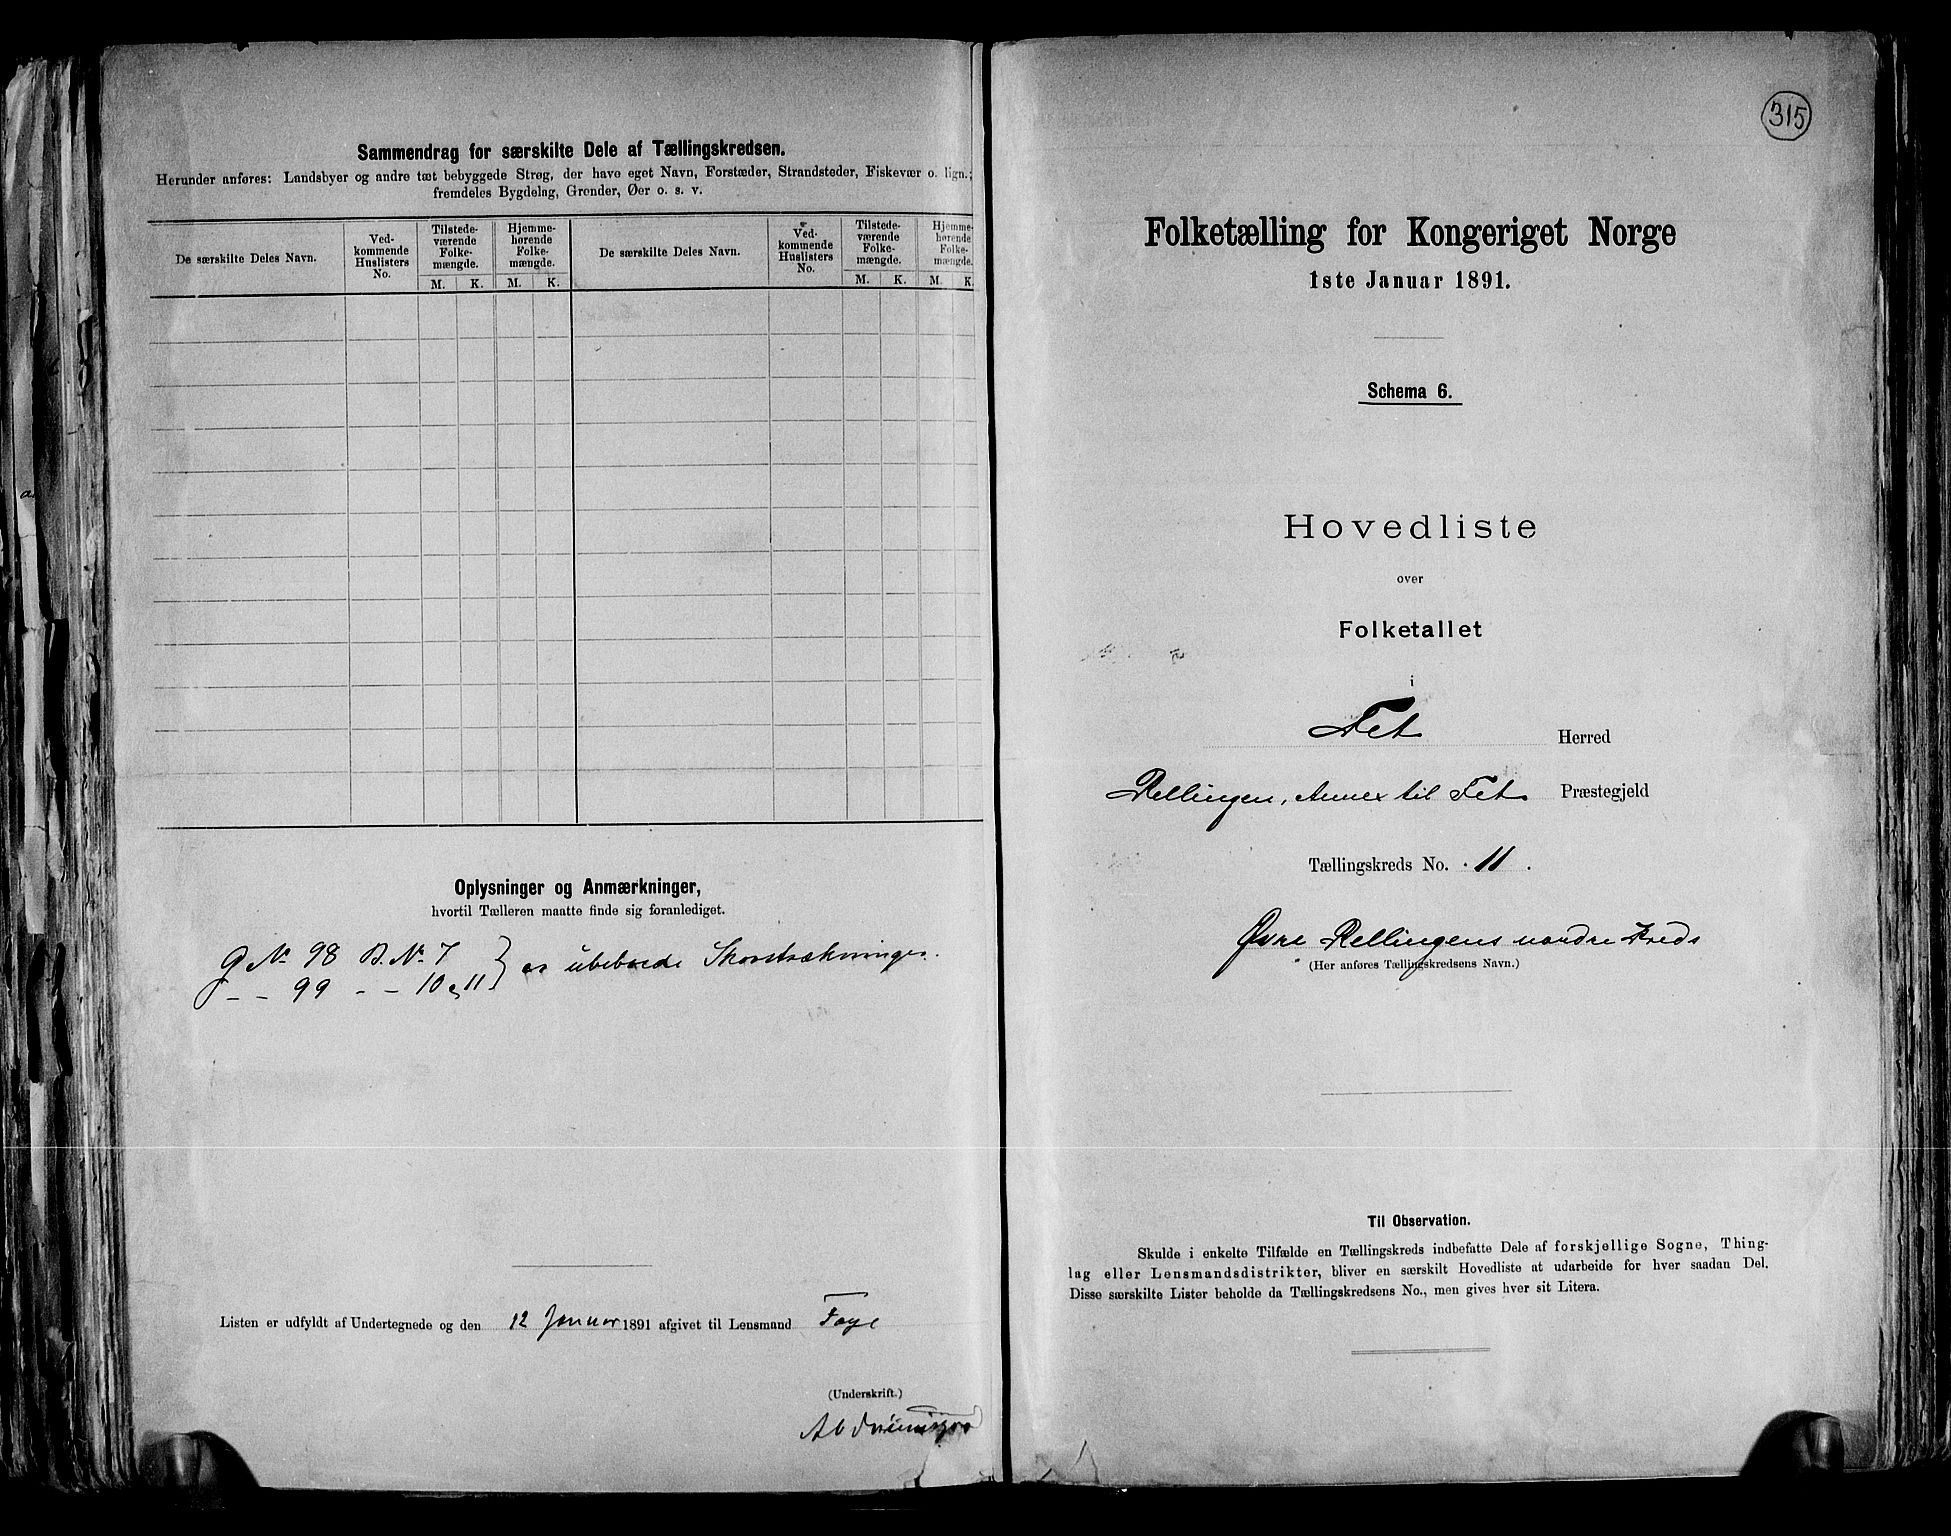 Sammendrag for særskilte Dele af Tællingskredsen.
Herunder anføres: Landsbyer og andre tæt bebyggede Strøg, der have eget Navn, Forstæder, Strandsteder, Fiskevær o. lign.;
fremdeles Bygdelag, Grender, Øer o. s. v.
De særskilte Deles Navn.
Ved-
kommende
Huslisters
No.
Tilstede-
værende
Folke-
mængde.
Hjemme-
hørende
Folke-
mængde.
M. K. M. K.
De særskilte Deles Navn.
Ved-
kommende
Huslisters
No.
Tilstede-
værende
Folke-
mængde.
Hjemme-
hørende
Folke-
mængde.
M. K. M. K.
Oplysninger og Anmærkninger,
hvortil Tælleren maatte finde sig foranlediget.
G. No. 98 B. No. 7 } er ubeboede Skovstrækninger.
- - 99 - - 10 & 11
Listen er udfyldt af Undertegnede og den 12 Januar 1891 afgivet til Lensmand Faye
(Underskrift.)
315
Folketælling for Kongeriget Norge
1ste Januar 1891.
Schema 6.
Hovedliste
over
Folketallet
i
Fet Herred
Rellingen, Annex til Fet Præstegjeld
Tællingskreds No. 11.
Øvre Rellingens nordre Kreds
(Her anføres Tællingskredsens Navn.)
Til Observation.
Skulde i enkelte Tilfælde en Tællingskreds indbefatte Dele af forskjellige Sogne, Thing-
lag eller Lensmandsdistrikter, bliver en særskilt Hovedliste at udarbeide for hver saadan Del.
Disse særskilte Lister beholde da Tællingskredsens No., men gives hver sit Litera.